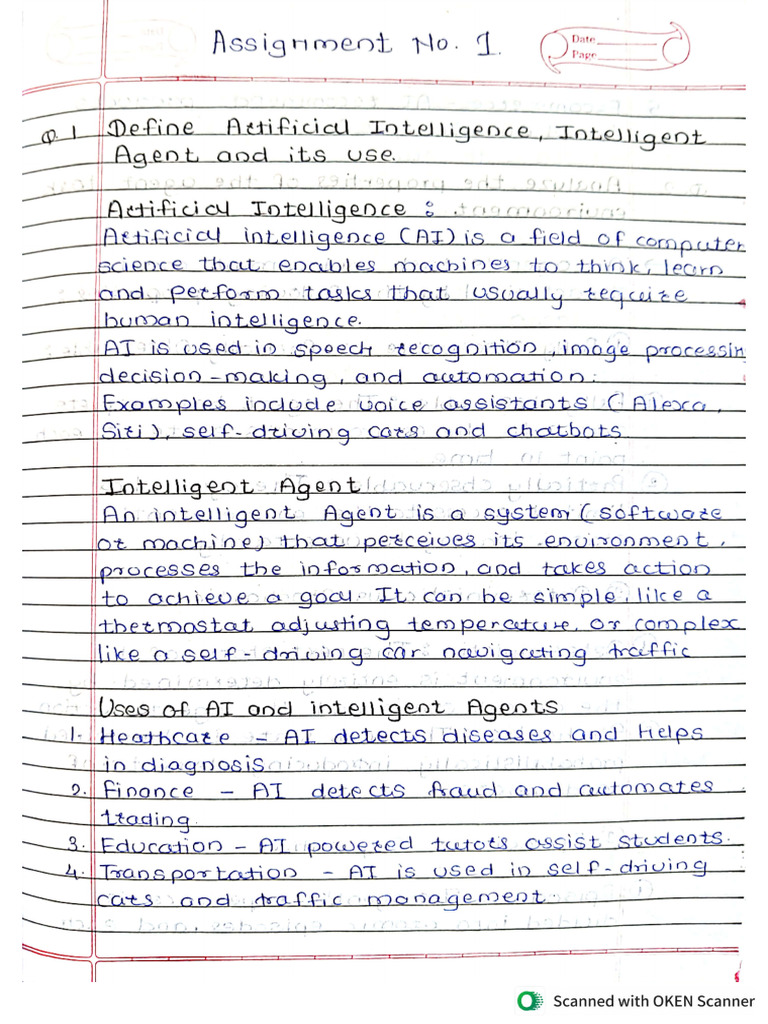 Assignment No. 1.
Date
Page
Q.1 Define Artificial Intelligence, Intelligent
Agent and its use.
Artificial Intelligence :
Artificial intelligence (AI) is a field of computer
science that enables machines to think, learn
and perform tasks that usually require
human intelligence.
AI is used in speech recognition, image processin
decision-making, and automation.
Examples include voice assistants (Alexa,
Siri), self-driving cars and chatbots
Intelligent Agent
An intelligent Agent is a system (software
or machine) that perceives its environment,
processes the information, and takes action
to achieve a goal. It can be simple, like a
thermostat adjusting temperature, or complex
like a self-driving car navigating traffic
Uses of AI and intelligent Agents
1. Heathcare - AI detects diseases and helps
in diagnosis
2. Finance - AI detects fraud and automates
trading.
3. Education - AI powered tutors assist students.
4. Transportation - AI is used in self-driving
cars and traffic management
Scanned with OKEN Scanner